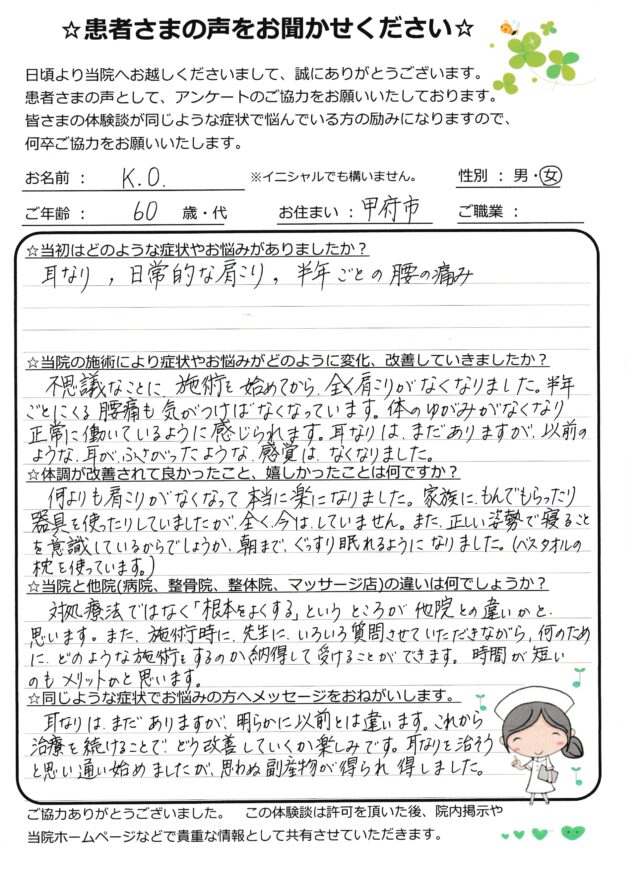 ☆患者さまの声をお聞かせください☆
日頃より当院へお越しくださいまして、誠にありがとうございます。
患者さまの声として、アンケートのご協力をお願いいたしております。
皆さまの体験談が同じような症状で悩んでいる方の励みになりますので、
何卒ご協力をお願いいたします。
お名前 : K.O. ※イニシャルでも構いません。 性別 : 男・女
ご年齢 : 60 歳・代 お住まい : 甲府市 ご職業 :
☆当初はどのような症状やお悩みがありましたか?
耳なり , 日常的な肩こり , 半年ごとの腰の痛み
☆当院の施術により症状やお悩みがどのように変化、改善していきましたか?
不思議なことに、施術を始めてから、全く肩こりがなくなりました。半年
ごとにくる腰痛も気がつけばなくなっています。体のゆがみがなくなり
正常に働いているように感じられます。耳なりは、まだありますが、以前の
ような、耳がふさがったような、感覚は、なくなりました。
☆体調が改善されて良かったこと、嬉しかったことは何ですか?
何よりも肩こりがなくなって本当に楽になりました。家族に、もんでもらったり
器具を使ったりしていましたが、全く、今は、していません。また、正しい姿勢で寝ること
を意識しているからでしょうか、朝まで、ぐっすり眠れるようになりました。(バスタオルの
枕を使っています。)
☆当院と他院(病院、整骨院、整体院、マッサージ店)の違いは何でしょうか?
対処療法ではなく「根本をよくする」というところが他院との違いかと、
思います。また、施術時に、先生に、いろいろ質問させていただきながら、何のため
に、どのような施術をするのか納得して受けることができます。時間が短い
のもメリットかと思います。
☆同じような症状でお悩みの方へメッセージをおねがいします。
耳なりは、まだありますが、明らかに以前とは違います。これから
治療を続けることで、どう改善していくか楽しみです。耳なりを治そう
と思い通い始めましたが、思わぬ副産物が得られ得しました。
ご協力ありがとうございました。 この体験談は許可を頂いた後、院内掲示や
当院ホームページなどで貴重な情報として共有させていただきます。